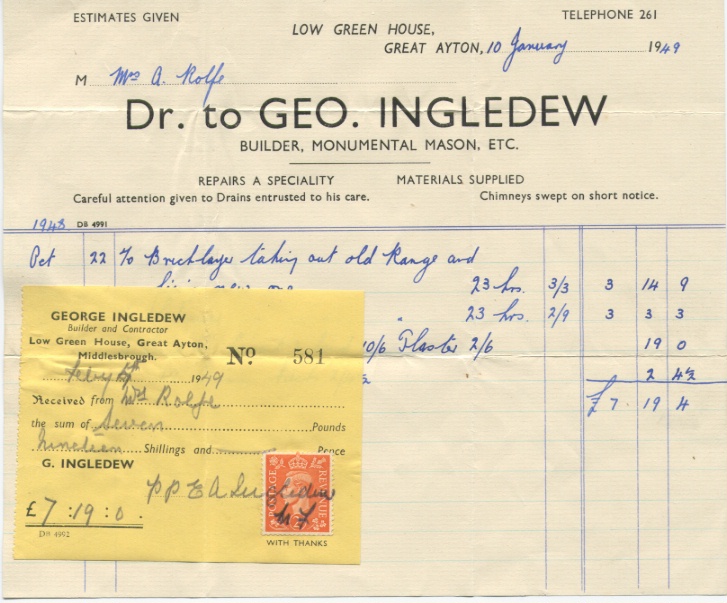 ESTIMATES GIVEN
TELEPHONE 261
LOW GREEN HOUSE,
GREAT AYTON, 10 January 1949
M Mrs A. Rolfe
Dr. to GEO. INGLEDEW
BUILDER, MONUMENTAL MASON, ETC.
REPAIRS A SPECIALITY MATERIALS SUPPLIED
Careful attention given to Drains entrusted to his care. Chimneys swept on short notice.
1948 DB 4991
Oct 22 To Bricklayer taking out old Range and
23 hrs. 3/3 3 14 9
" 23 hrs. 2/9 3 3 3
10/6 Plaster 2/6 19 0
2 4½
£ 7 19 4
GEORGE INGLEDEW
Builder and Contractor
Low Green House, Great Ayton,
Middlesbrough.
No. 581
Feby 1949
Received from Mrs Rolfe
the sum of Seven Pounds
Nineteen Shillings and Pence
G. INGLEDEW
pp E A Ingledew
£7 : 19 : 0 .
DB 4992
POSTAGE REVENUE
WITH THANKS